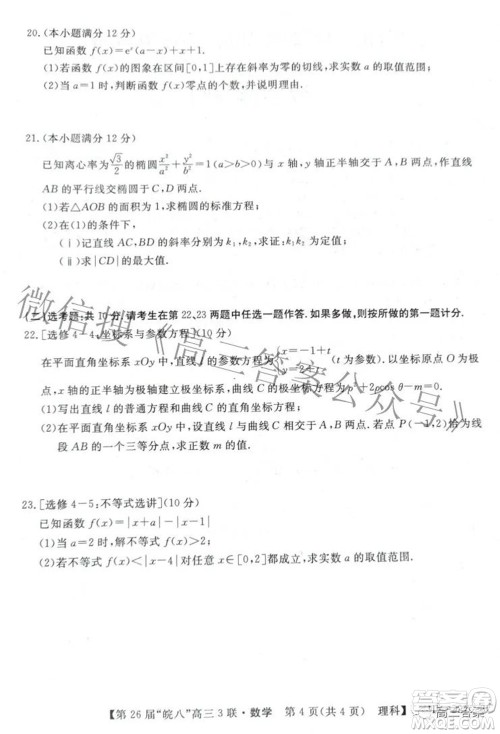 20.(本小题满分12分)
已知函数 f(x)=eˣ(a-x²)+x.
(1)若函数 f(x)的图象在区间[0,1]上存在斜率为零的切线,求实数 a 的取值范围;
(2)当 a=1时,判断函数 f(x)零点的个数,并说明理由.
21.(本小题满分12分)
已知离心率为 √3/2 的椭圆 x²/a²+y²/b²=1(a>b>0)与 x 轴,y 轴正半轴交于 A,B 两点,作直线
AB 的平行线交椭圆于 C,D 两点.
(1)若△AOB 的面积为1,求椭圆的标准方程;
(2)在(1)的条件下,
(ⅰ)记直线 AC,BD 的斜率分别为 k₁,k₂,求证:k₁·k₂为定值;
(ⅱ)求|CD|的最大值.
(二)选考题:共10分.请考生在第22、23两题中任选一题作答.如果多做,则按所做的第一题计分.
22.[选修4-4:坐标系与参数方程](10分)
在平面直角坐标系 xOy 中,直线 l 的参数方程为 {x=-1+t (t 为参数),以坐标原点 O 为极
点,x 轴的正半轴为极轴建立极坐标系,曲线 C 的极坐标方程为 ρ²+2ρcos θ-m=0.
(1)写出直线 l 的普通方程和曲线 C 的直角坐标方程;
(2)在平面直角坐标系 xOy 中,直线 l 与曲线 C 相交于 A,B 两点.若点 P(-1,2)恰为线
段 AB 的一个三等分点,求正数 m 的值.
23.[选修4-5:不等式选讲](10分)
已知函数 f(x)=|x+a|-|x+1|.
(1)当 a=2时,解不等式 f(x)>2;
(2)若不等式 f(x)<|x-4|对任意 x∈[0,2]都成立,求实数 a 的取值范围.
微信搜《高三答案公众号》
【第26届“皖八”高三3联·数学 第4页(共4页) 理科】
高三答案